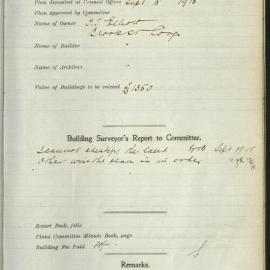 Plan deposited at Council Offices Sept 8 1918
Plan approved by Committee
Name of Owner
Crookst Coog
Name of Builder
Name of Architect
Value of Buildings to be erected £1350
Building Surveyor's Report to Committee.
cannot identify the land Sept 19 18
Otherwise the plan is in order
Report Book, folio
Plans Committee Minute Book, page
Building Fee Paid
Remarks.